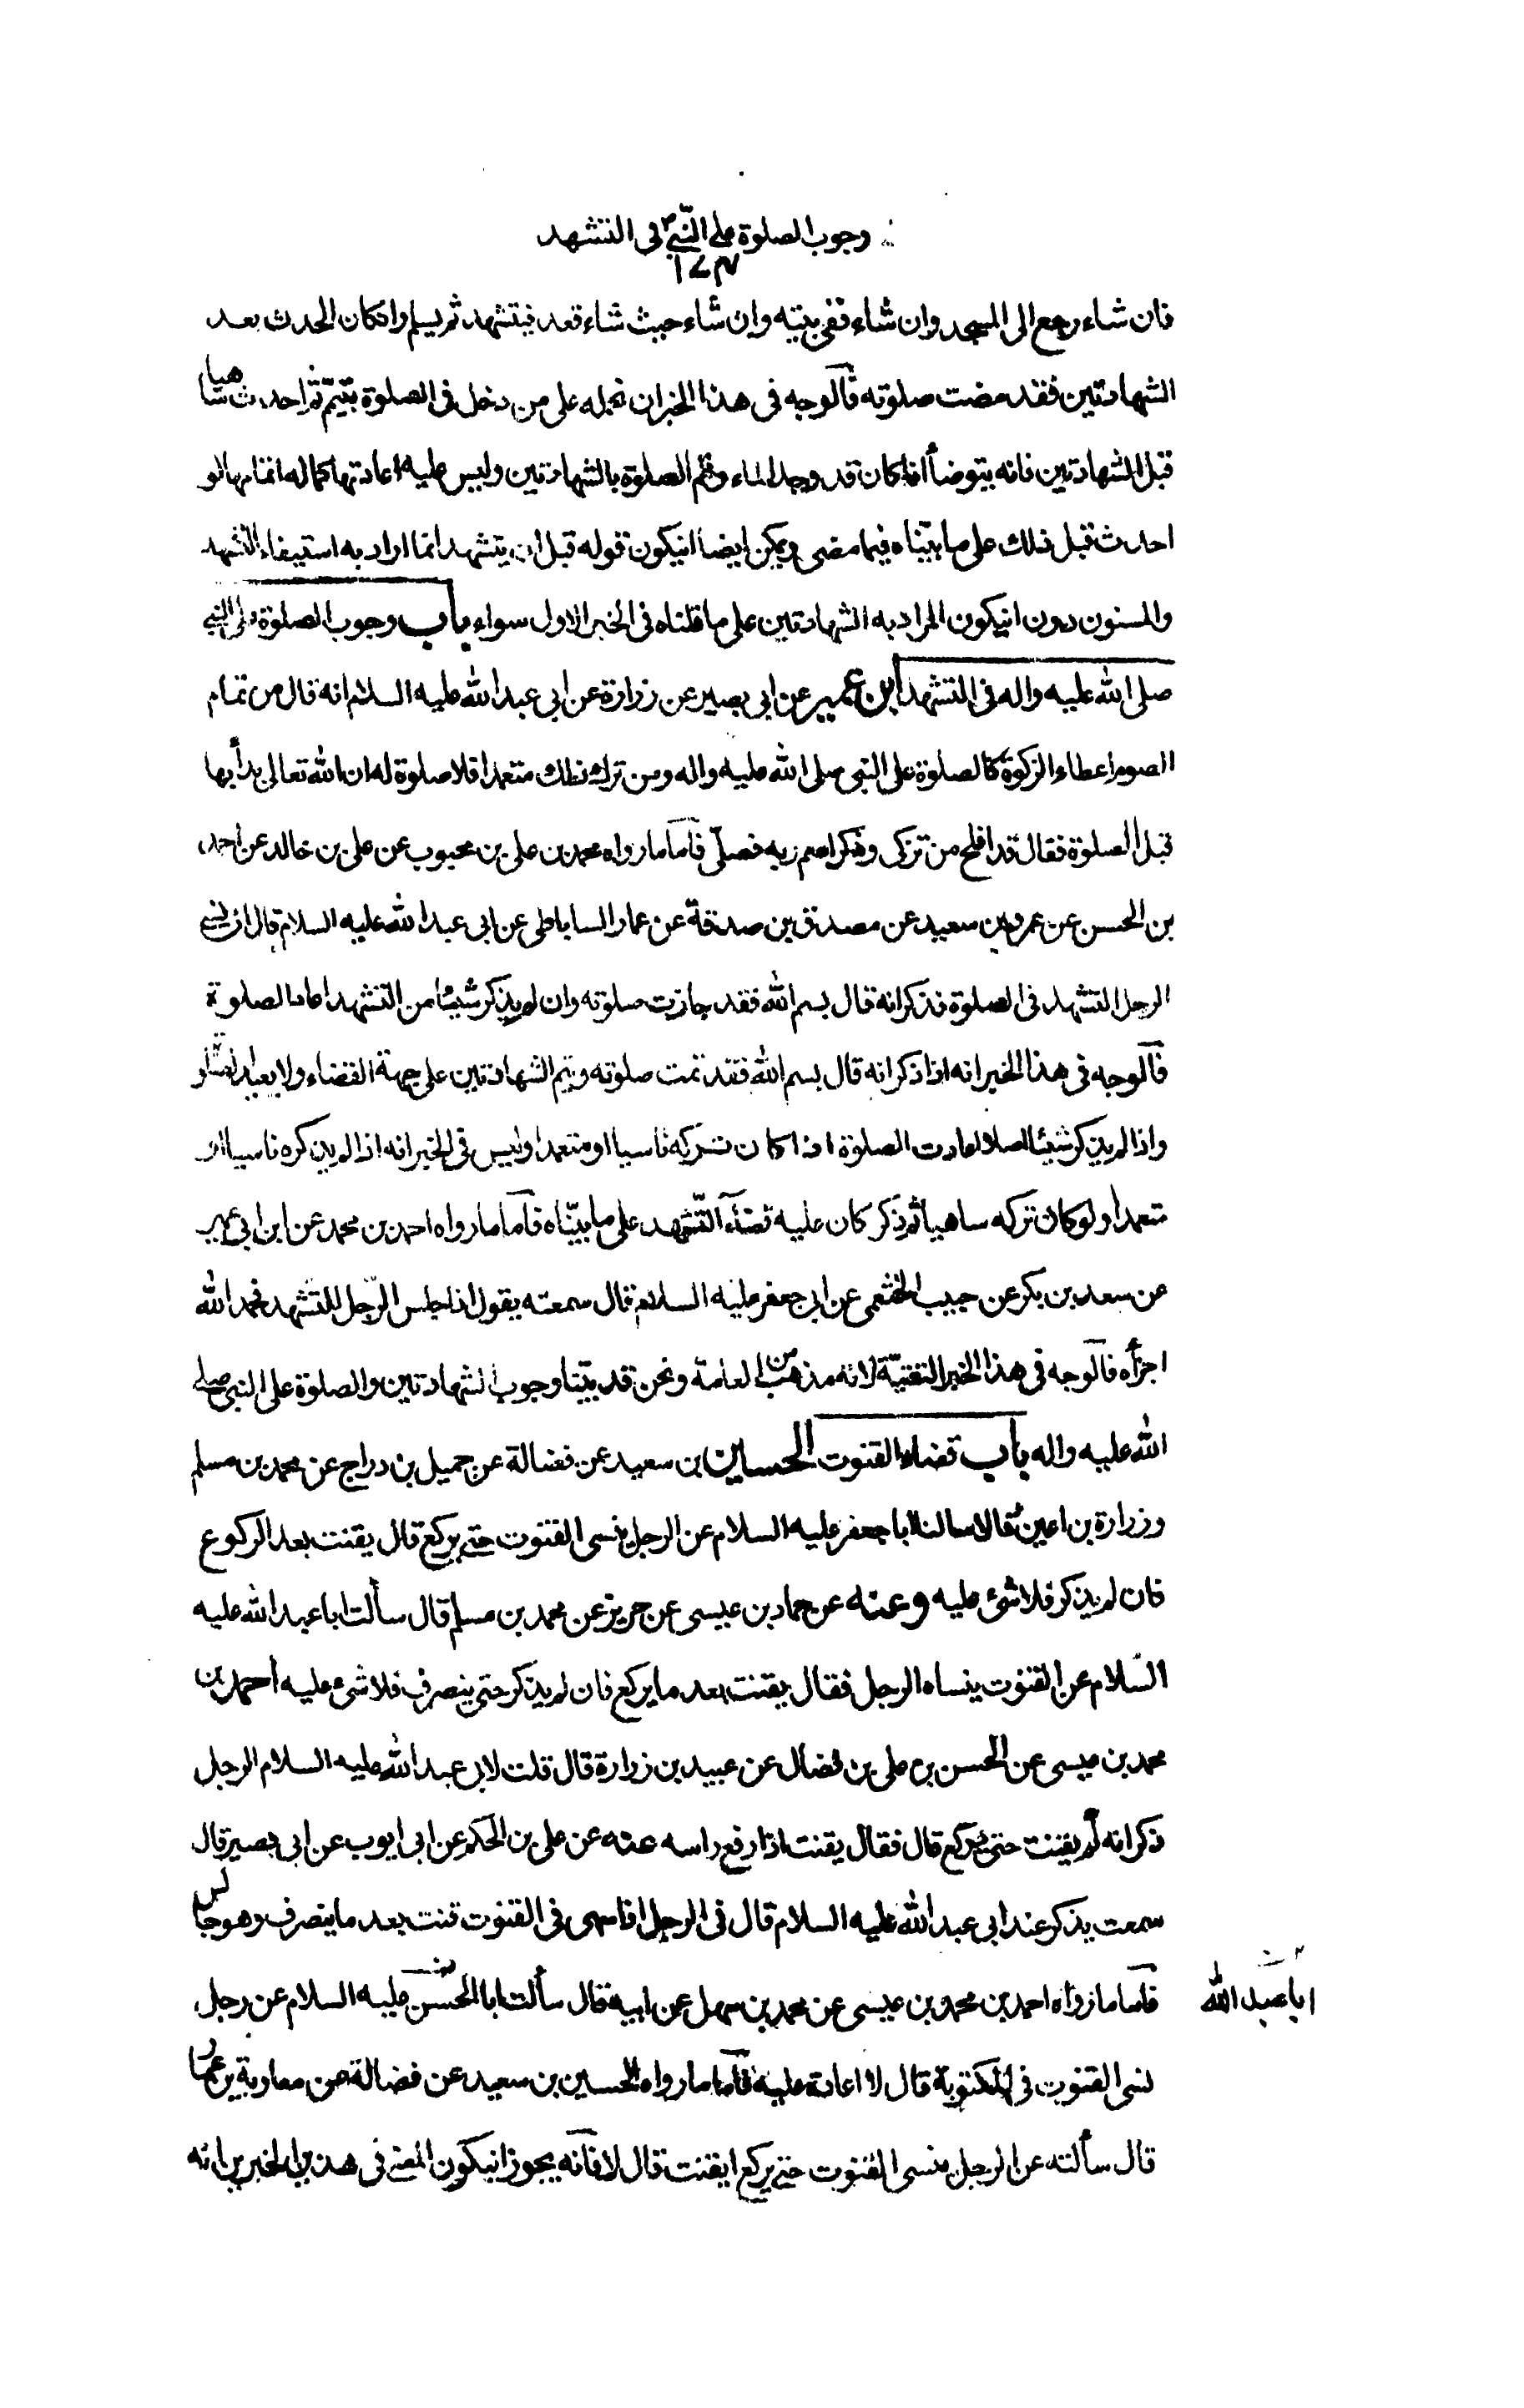 وجوب الصلوة على النبي ص فى التشهد
١٧٣
فان شاء رجع الى المسجد وان شاء ففى بيته وان شاء حيث شاء قعد فيتشهد ثم يسلم وانكان الحدث بعد
الشهادتين فقد مضت صلوته فالوجه فى هذا الخبر ان نحمله على من دخل فى الصلوة بتيمّم ثم احدث ساهيا
قبل الشهادتين فانه يتوضأ اذا كان قد وجد الماء وتمم الصلوة بالشهادتين وليس عليه اعادتها كما له اتمامها لو
احدث قبل ذلك على ما بيّناه فيما مضى ويمكن ايضا انيكون قوله قبل ان يتشهد انما اراد به استيفاء التشهد
والمسنون دون انيكون المراد به الشهادتين على ما قلناه فى الخبر الاول سواء باب وجوب الصلوة على النبي
صلى الله عليه واله فى التشهد ابن عمير عن ابى بصير عن زرارة عن ابى عبد الله عليه السلام انه قال من تمام
الصوم اعطاء الزكوة كالصلوة على النبى صلى الله عليه واله ومن ترك ذلك متعمدا فلا صلوة له ان الله تعالى بدأ بها
قبل الصلوة فقال قد افلح من تزكى وذكر اسم ربه فصلّى فاما ما رواه محمد بن على بن محبوب عن على بن خالد عن احمد
بن الحسن عن عمرو بن سعيد عن مصدق بن صدقة عن عمار الساباطى عن ابى عبد الله عليه السلام قال ان نسي
الرجل التشهد فى الصلوة فذكر انه قال بسم الله فقد جازت صلوته وان لم يذكر شيئا من التشهد اعاد الصلوة
فالوجه فى هذا الخبر انه اذا ذكر انه قال بسم الله فقد تمت صلوته ويتم الشهادتين على جهة القضاء ولا يعيد الصلوة
واذا لم يذكر شيئا اصلا اعادت الصلوة اذا كان تركه ناسيا او متعمدا وليس فى الخبر انه اذا لم يذكره ناسيا او
متعمدا ولو كان تركه ساهيا ثم ذكر كان عليه قضاء التّشهد على ما بيّناه فاما ما رواه احمد بن محمد عن ابن ابى عمير
عن سعد بن بكر عن حبيب الخثعمى عن ابى جعفر عليه السلام قال سمعته يقول اذا جلس الرّجل للتشهد فحمد الله
اجزأه فالوجه فى هذا الخبر التقيّة لانه مذهب من العامة ونحن قد بيّنا وجوب الشهادتين والصلوة على النبى صلى
الله عليه واله باب قضاء القنوت الحسين بن سعيد عن فضالة عن جميل بن دراج عن محمد بن مسلم
وزرارة بن اعين قالا سالنا ابا جعفر عليه السلام عن الرجل ينسى القنوت حتى يركع قال يقنت بعد الركوع
فان لم يذكر فلا شئ عليه وعنه عن حماد بن عيسى عن حريز عن محمد بن مسلم قال سألت ابا عبد الله عليه
السّلام عن القنوت ينساه الرجل فقال يقنت بعد ما يركع فان لم يذكر حتى ينصرف فلا شىء عليه احمد بن
محمد بن عيسى عن الحسن بن على بن فضال عن عبيد بن زرارة قال قلت لابى عبد الله عليه السلام الرجل
ذكر انه لم يقنت حتى يركع قال فقال يقنت اذا رفع راسه عنه عن على بن الحكم عن ابى ايوب عن ابى بصير قال
سمعت يذكر عند ابى عبد الله عليه السلام قال فى الرجل اذا سهى فى القنوت قنت بعد ما ينصرف وهو جالس
فاما ما رواه احمد بن محمد بن عيسى عن محمد بن سهل عن ابيه قال سألت ابا الحسن عليه السلام عن رجل
ابا عبد الله
نسى القنوت فى المكتوبة قال لا اعادة عليه فاما ما رواه الحسين بن سعيد عن فضالة عن معاوية بن عمار
قال سألته عن الرجل ينسى القنوت حتى يركع ايقنت قال لا فانه يجوز انيكون المعنى فى هذين الخبرين انه